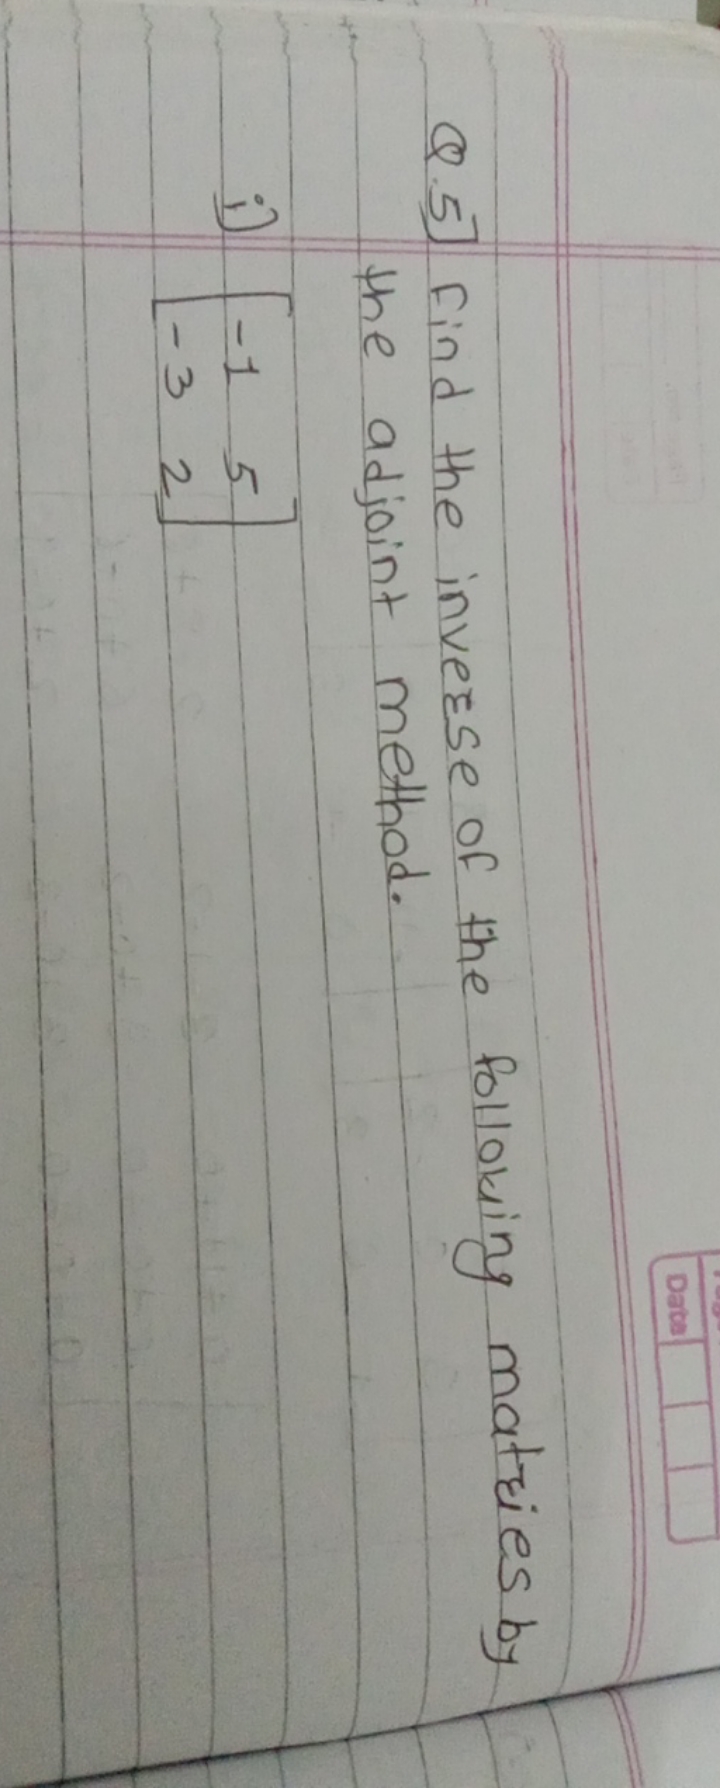 Q.5] Find the inverse of the following matries by
the adjoint method.
i) [-1 5
-3 2]
Date